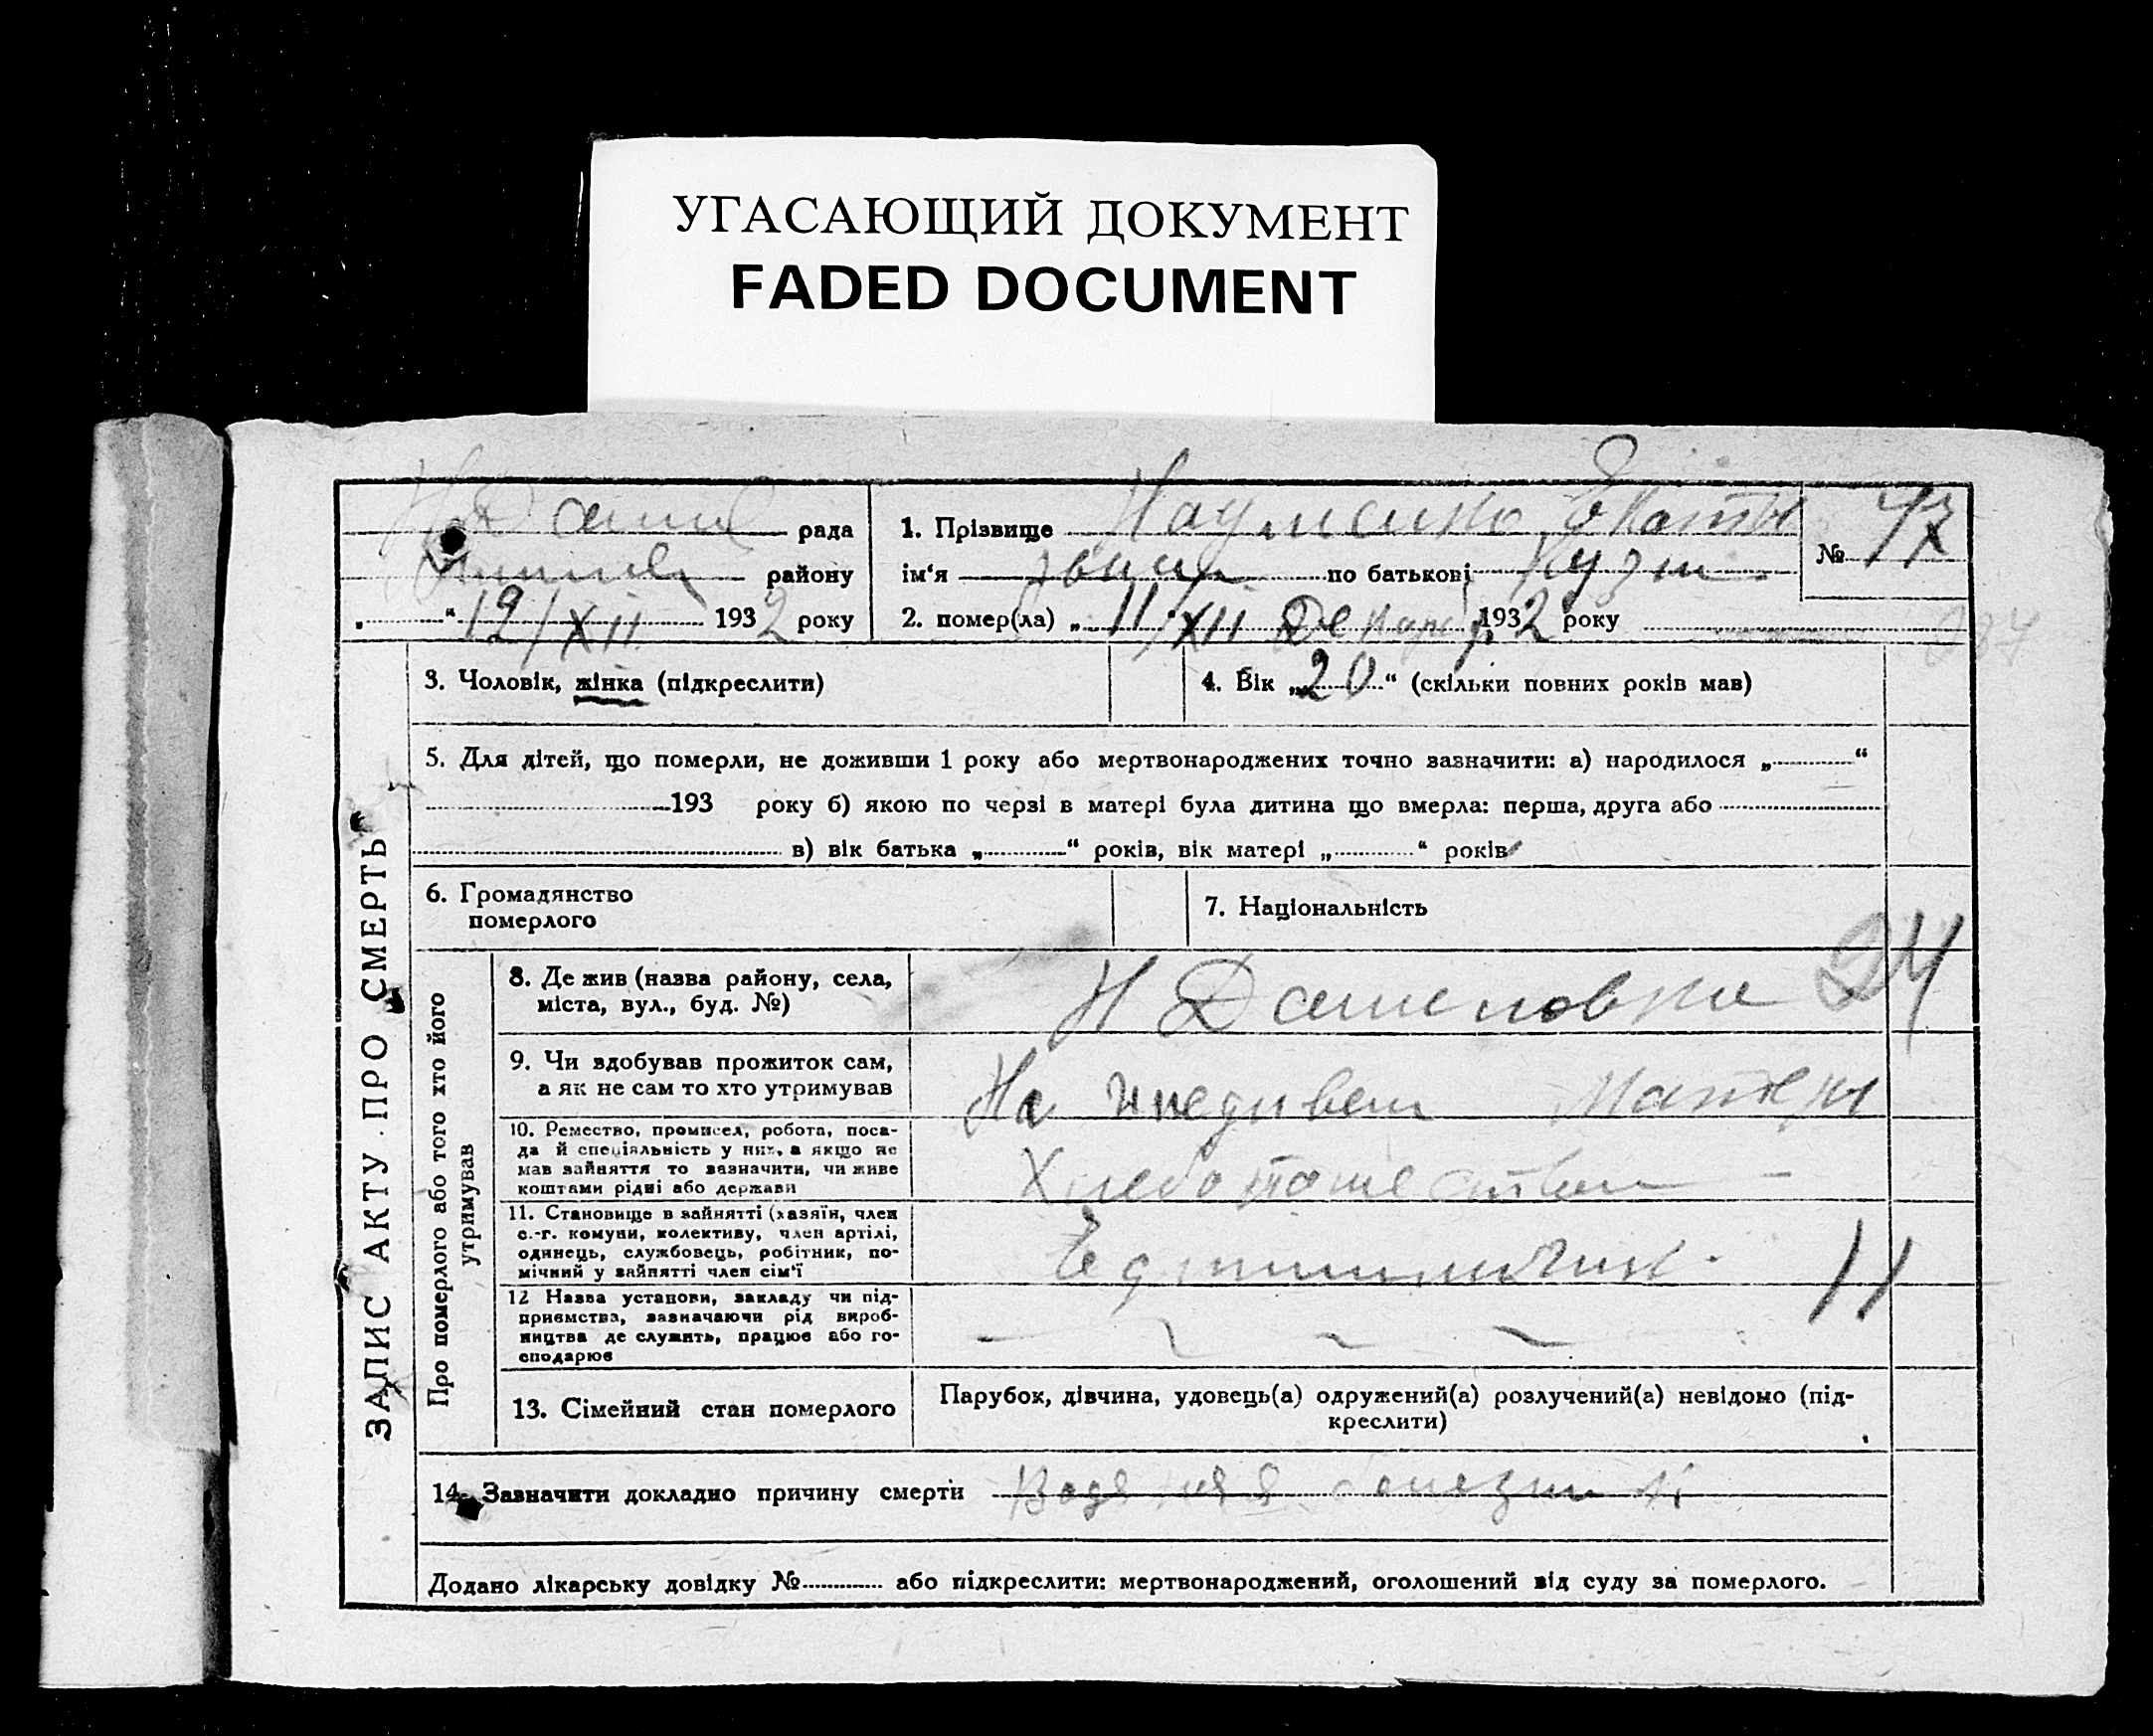 УГАСАЮЩИЙ ДОКУМЕНТ
FADED DOCUMENT
рада
району
„ “ 19/XII 1932 року
1. Прізвище Науменко
ім‘я по батькові Кузм
№ 47
2. помер(ла) „ 11/XII 1932 року
3. Чоловік, жінка (підкреслити)
4. Вік „20“ (скільки повних років мав)
5. Для дітей, що померли, не доживши 1 року або мертвонароджених точно зазначити: а) народилося „ “
193 року б) якою по черзі в матері була дитина що вмерла: перша, друга або
в) вік батька „ “ років, вік матері „ “ років
6. Громадянство
померлого
7. Національність
ЗАПИС АКТУ ПРО СМЕРТЬ
Про померлого або того хто його
утримував
8. Де жив (назва району, села,
міста, вул., буд. №)
Н Даниловка 24
9. Чи здобував прожиток сам,
а як не сам то хто утримував
На Матери
10. Ремество, промисел, робота, поса-
да й спеціяльність у них, а якщо не
мав зайняття то зазначити, чи живе
коштами рідні або держави
11. Становище в зайнятті (хазяїн, член
с.-г. комуни, колективу, член артілі,
одинець, службовець, робітник, по-
мічний у зайнятті член сім‘ї
11
12 Назва установи, закладу чи під-
приємства, зазначаючи рід вироб-
ництва де служить, працює або го-
сподарює
13. Сімейний стан померлого
Парубок, дівчина, удовець(а) одружений(а) розлучений(а) невідомо (під-
креслити)
14. Зазначити докладно причину смерти
Додано лікарську довідку № або підкреслити: мертвонароджений, оголошений від суду за померлого.